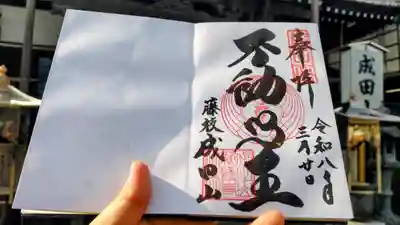 奉拝
令和八年
三月廿日
不動明王
藤枝成田山
成田山